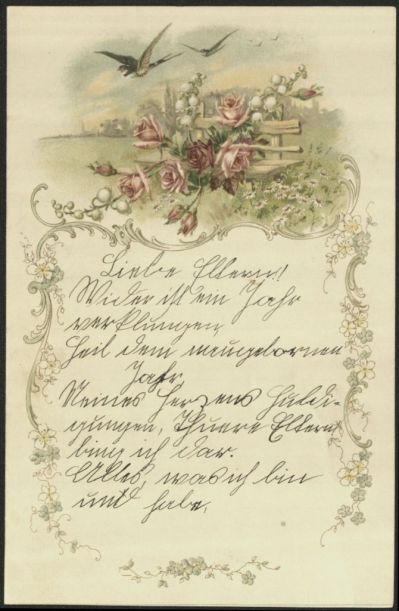 Liebe Eltern!
Wider ist ein Jahr
verklungen,
Heil dem neugebornen
Jahr,
Meines Herzens Huldi-
gungen, Thuere Eltern
bing ich dar.
Alles, was ich bin
und habe,